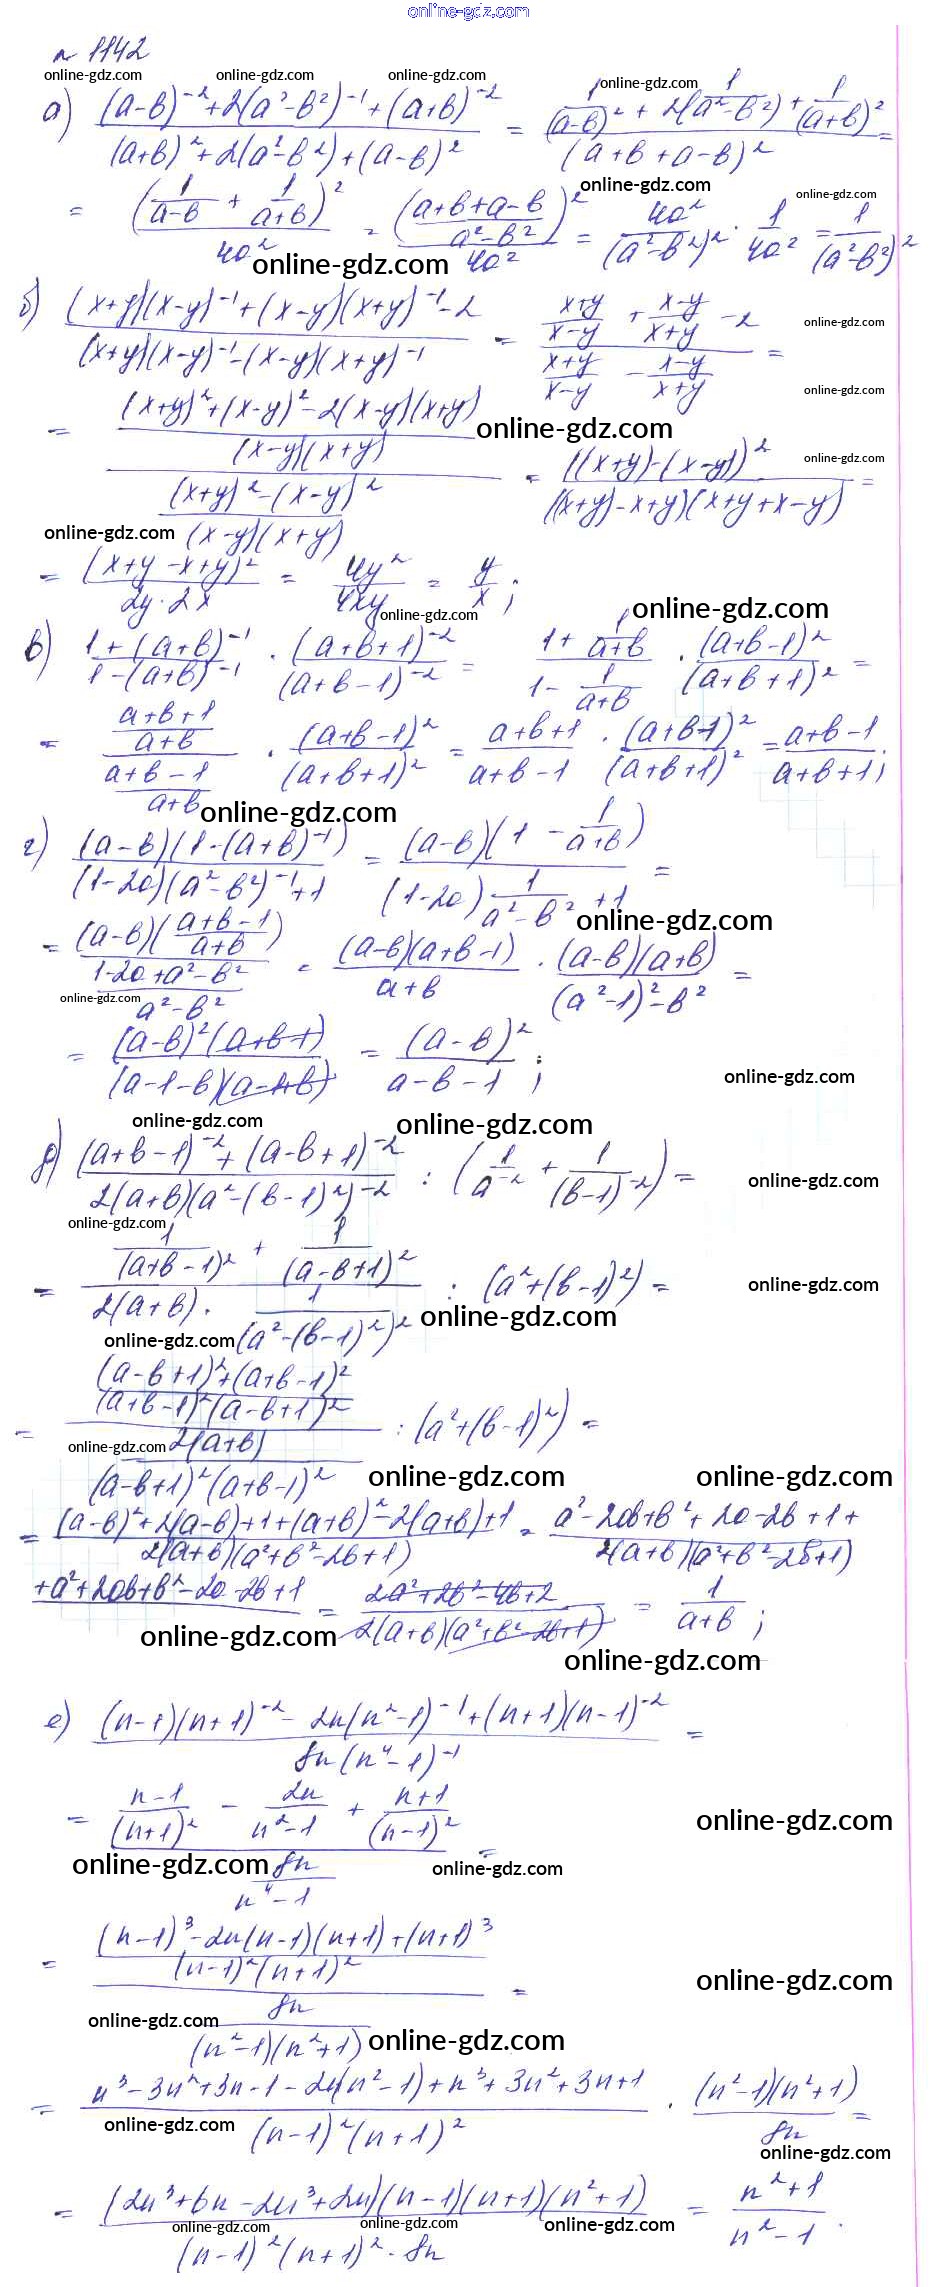 online-gdz.com
n 1142
online-gdz.com online-gdz.com online-gdz.com online-gdz.com
а) ((a-b)^-2 + 2(a²-b²)^-1 + (a+b)^-2) / ((a+b)² + 2(a²-b²) + (a-b)²) = (1/(a-b)² + 2(1/(a²-b²)) + 1/(a+b)²) / (a+b+a-b)² =
online-gdz.com online-gdz.com
= (1/(a-b) + 1/(a+b))² / 4a² = ((a+b+a-b)/(a²-b²))² / 4a² = 4a²/(a²-b²)² · 1/4a² = 1/(a²-b²)²
online-gdz.com
б) ((x+y)(x-y)^-1 + (x-y)(x+y)^-1 - 2) / ((x+y)(x-y)^-1 - (x-y)(x+y)^-1) = ((x+y)/(x-y) + (x-y)/(x+y) - 2) / ((x+y)/(x-y) - (x-y)/(x+y)) =
online-gdz.com
online-gdz.com
= (((x+y)² + (x-y)² - 2(x-y)(x+y)) / ((x-y)(x+y))) / (((x+y)² - (x-y)²) / ((x-y)(x+y))) = ((x+y)-(x-y))² / ((x+y)-x+y)(x+y+x-y) =
online-gdz.com online-gdz.com
online-gdz.com
= (x+y-x+y)² / 2y·2x = 4y²/4xy = y/x ;
online-gdz.com online-gdz.com
в) (1+(a+b)^-1) / (1-(a+b)^-1) · (a+b+1)^-2 / (a+b-1)^-2 = (1 + 1/(a+b)) / (1 - 1/(a+b)) · (a+b-1)² / (a+b+1)² =
= ((a+b+1)/(a+b)) / ((a+b-1)/(a+b)) · (a+b-1)² / (a+b+1)² = (a+b+1)/(a+b-1) · (a+b-1)² / (a+b+1)² = (a+b-1)/(a+b+1);
online-gdz.com
г) (a-b)(1-(a+b)^-1) / ((1-2a)(a²-b²)^-1 + 1) = (a-b)(1 - 1/(a+b)) / ((1-2a) 1/(a²-b²) + 1) =
online-gdz.com
= (a-b)((a+b-1)/(a+b)) / ((1-2a+a²-b²)/(a²-b²)) = (a-b)(a+b-1)/(a+b) · (a-b)(a+b)/((a²-1)²-b²) =
online-gdz.com
= (a-b)²(a+b-1) / (a-1-b)(a-1+b) = (a-b)²/(a-b-1) ;
online-gdz.com
online-gdz.com online-gdz.com
д) ((a+b-1)^-2 + (a-b+1)^-2) / (2(a+b)(a²-(b-1)²)^-2) : (1/a^-2 + 1/(b-1)^-2) =
online-gdz.com
online-gdz.com
= (1/(a+b-1)² + 1/(a-b+1)²) / (2(a+b) · 1/(a²-(b-1)²)²) : (a²+(b-1)²) =
online-gdz.com
online-gdz.com online-gdz.com
= (((a-b+1)²+(a+b-1)²) / ((a+b-1)²(a-b+1)²)) / (2(a+b) / ((a-b+1)²(a+b-1)²)) : (a²+(b-1)²) =
online-gdz.com
online-gdz.com online-gdz.com
= ((a-b)²+2(a-b)+1+(a+b)²-2(a+b)+1) / (2(a+b)(a²+b²-2b+1)) = (a²-2ab+b²+2a-2b+1+
+a²+2ab+b²-2a-2b+1) / (2(a+b)(a²+b²-2b+1)) = (2a²+2b²-4b+2) / (2(a+b)(a²+b²-2b+1)) = 1/(a+b) ;
online-gdz.com
online-gdz.com
е) ((n-1)(n+1)^-2 - 2n(n²-1)^-1 + (n+1)(n-1)^-2) / (8n(n⁴-1)^-1) =
= ((n-1)/(n+1)² - 2n/(n²-1) + (n+1)/(n-1)²) / (8n/(n⁴-1)) =
online-gdz.com
online-gdz.com online-gdz.com
= (((n-1)³-2n(n-1)(n+1)+(n+1)³) / ((n-1)²(n+1)²)) / (8n/((n²-1)(n²+1))) =
online-gdz.com
online-gdz.com online-gdz.com
= (n³-3n²+3n-1-2n(n²-1)+n³+3n²+3n+1) / ((n-1)²(n+1)²) · (n²-1)(n²+1)/8n =
online-gdz.com online-gdz.com
= (2n³+6n-2n³+2n)(n-1)(n+1)(n²+1) / ((n-1)²(n+1)²·8n) = (n²+1)/(n²-1) .
online-gdz.com online-gdz.com online-gdz.com